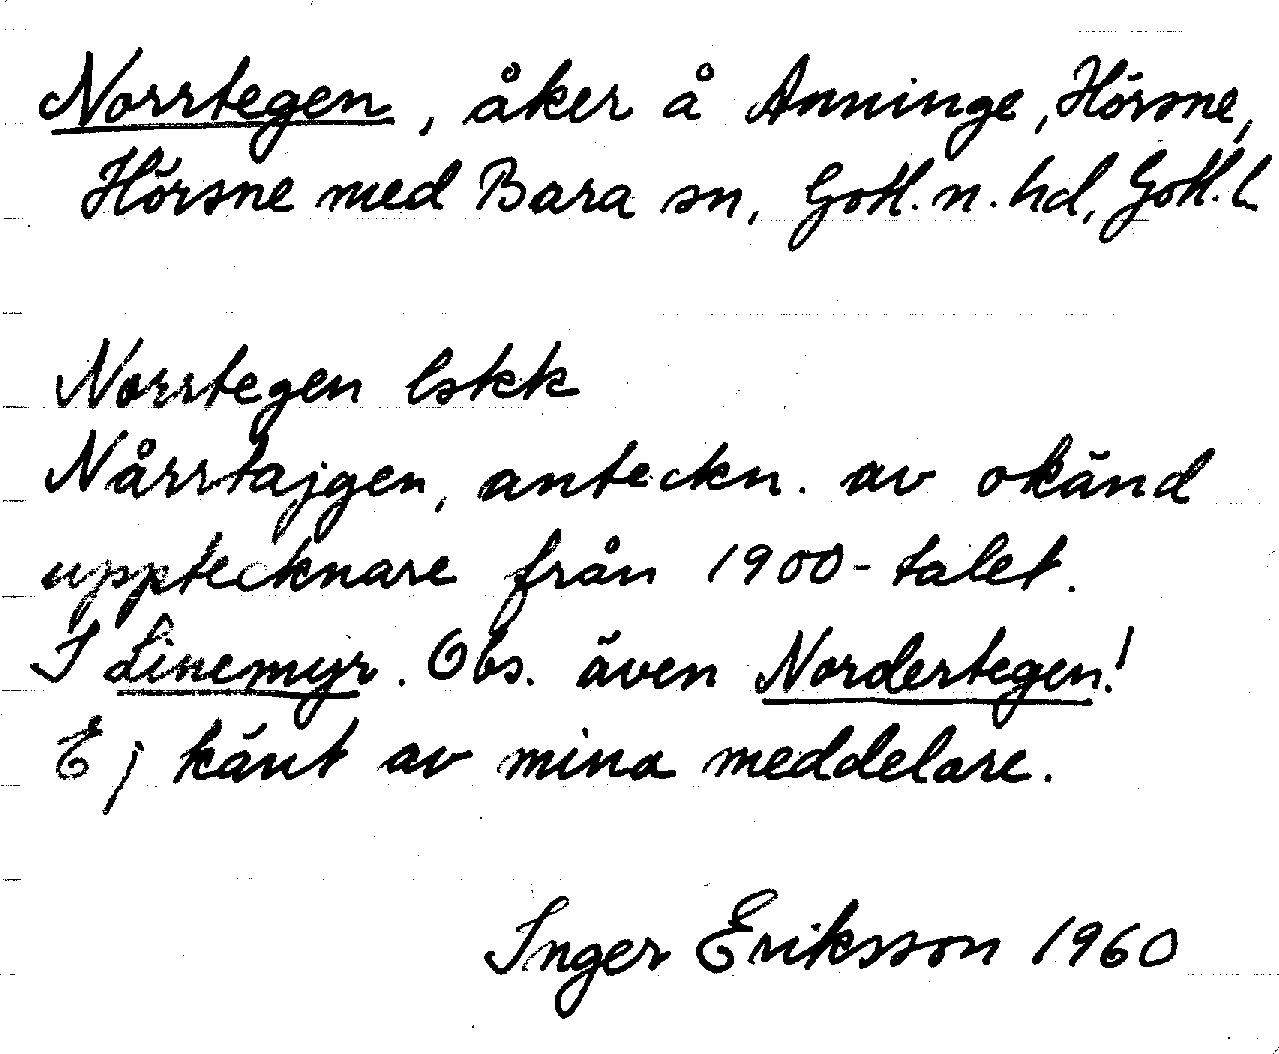 Norrtegen, åker å Anninge, Hörsne,
Hörsne med Bara sn, Gotl. n. hd, Gotl. l.
Norrtegen lskk
Nårrtajgen, anteckn. av okänd
upptecknare från 1900-talet.
I Linemyr. Obs. även Nordertegen!
Ej känt av mina meddelare.
Inger Eriksson 1960